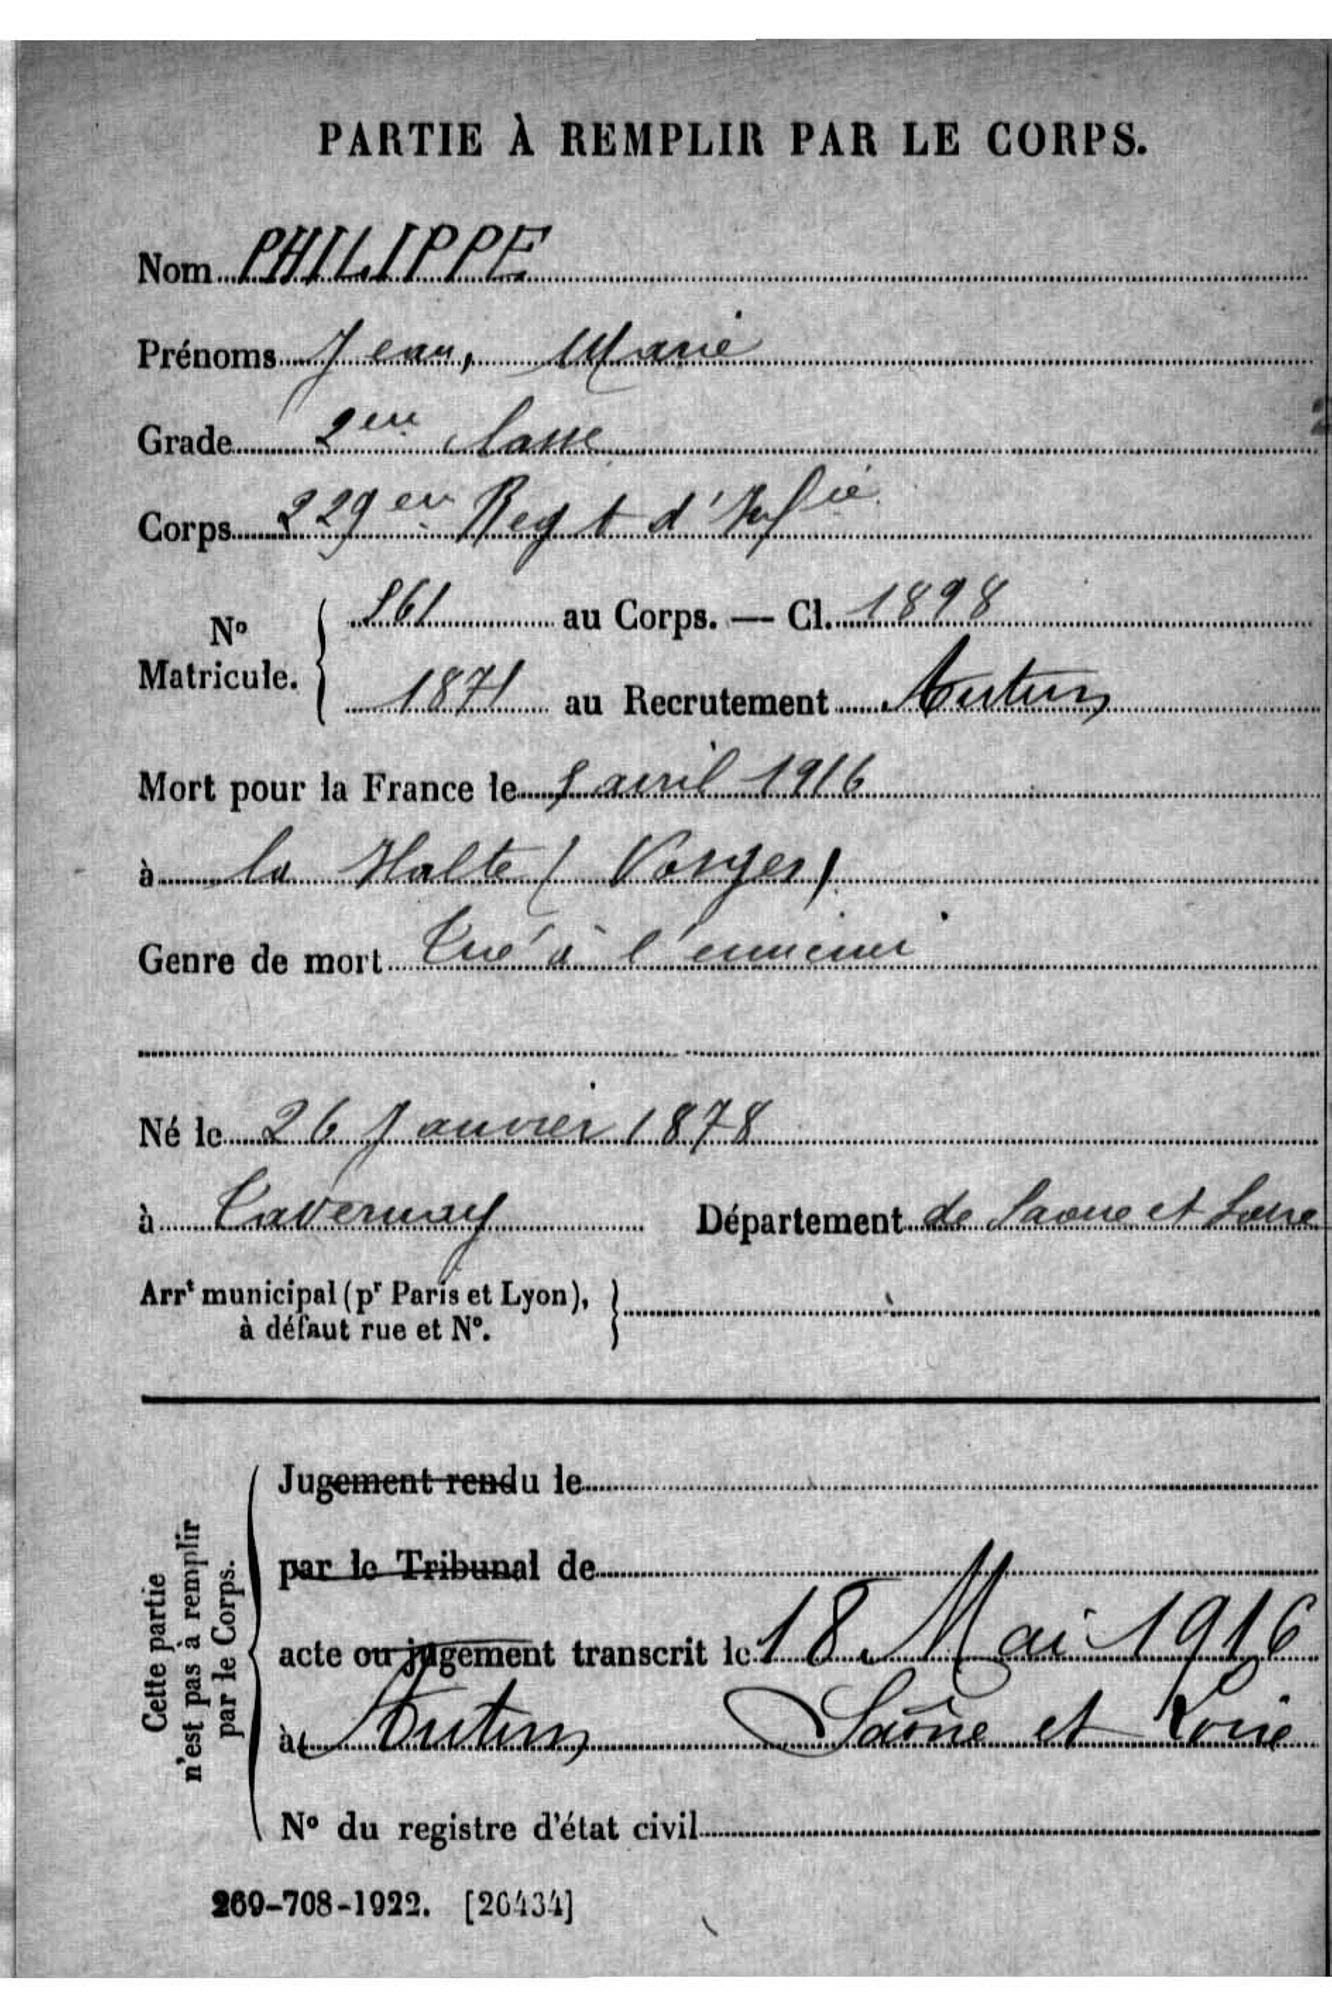 PARTIE À REMPLIR PAR LE CORPS.
Nom PHILIPPE
Prénoms Jean, Marie
Grade 2em classe
Corps 229em Regt d'Infie
No Matricule. 561 au Corps. — Cl. 1898
1871 au Recrutement Autun
Mort pour la France le 5 avril 1916
à la Halte (Vosges)
Genre de mort Tué à l'ennemi
Né le 26 Janvier 1878
à Tavernay Département de Saone et Loire
Arrt municipal (pr Paris et Lyon),
à défaut rue et No.
Cette partie
n'est pas à remplir
par le Corps.
Jugement rendu le
par le Tribunal de
acte ou jugement transcrit le 18 Mai 1916
à Autun Saône et Loire
No du registre d'état civil
269-708-1922. [26434]